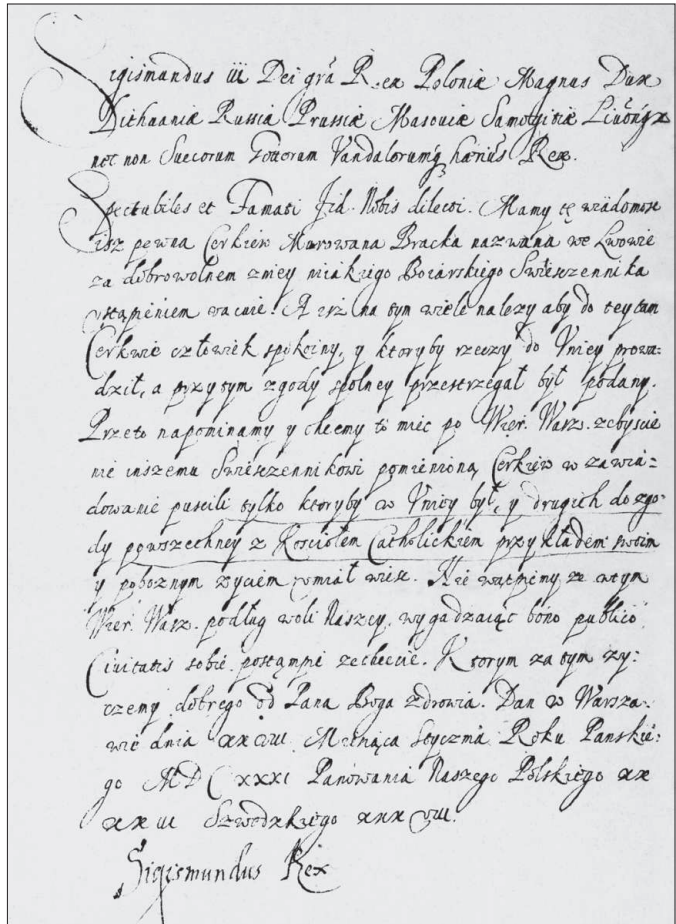 Sigismandus iii Dei gra Rex Poloniæ Magnus Dux
Lithuaniæ Russiæ Prussiæ Masouiæ Samogitiæ Liuoniæ
nec non Suecorum Gottorum Vandalorumq hærius Rex.
Spectabiles et Famati fid. Nobis dilecti. Mamy tę wiadomosc
isz pewna Cerkiew Murowana Bracka nazwana we Lwowie
za dobrowolnem zmey niakiego Boiarskiego Swieszczennika
vstąpieniem vacuie. A isz na tym wiele nalezy aby do tey tam
Cerkwie człowiek spokoiny, y ktoryby rzeczy do Vniey prowa:
dził, a przytym zgody spolney przestrzegał był podany.
Przeto napominamy y chcemy to miec po Wier. Wasz. zebyscie
nie inszemu Swieszczennikowi pomienioną Cerkiew w zawia:
dowanie puscili tylko ktoryby w Vniey był, y drugich do zgo:
dy powszechney z Kosciołem Catholickiem przykładem swoim
y poboznym zyciem vmiał wiesc. Nie wątpimy ze w tym
Wier. Wasz. podług woli Naszey, wygadzaiąc bono publico
Ciuitatis sobie postąpic zechcecie. Ktorym za tym zy:
czemy dobrego od Pana Boga zdrowia. Dan w Warsza:
wie dnia xxviii Miesiąca Stycznia Roku Panskie:
go MDCXXXI Panowania Naszego Polskiego xx
xxiii Szwedzkiego xxxviii.
Sigismundus Rex